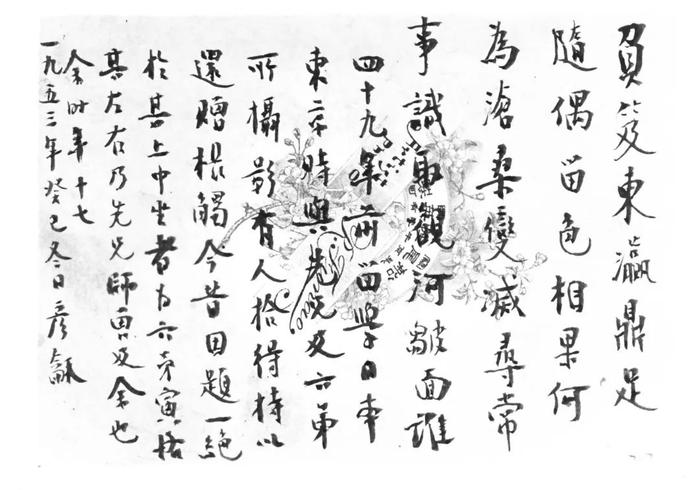 負笈東瀛鼎足
隨偶留色相果何
為滄桑變滅尋常
事識取觀河皺面誰
四十九年前留學日本
東京時與先兄及六弟
所攝影有人拾得持以
還贈棖觸今昔因題一絕
於其上中坐者為六弟寅恪
其左右乃先兄師曾及余也
余時年十七
一九五三年癸巳冬日彥龢